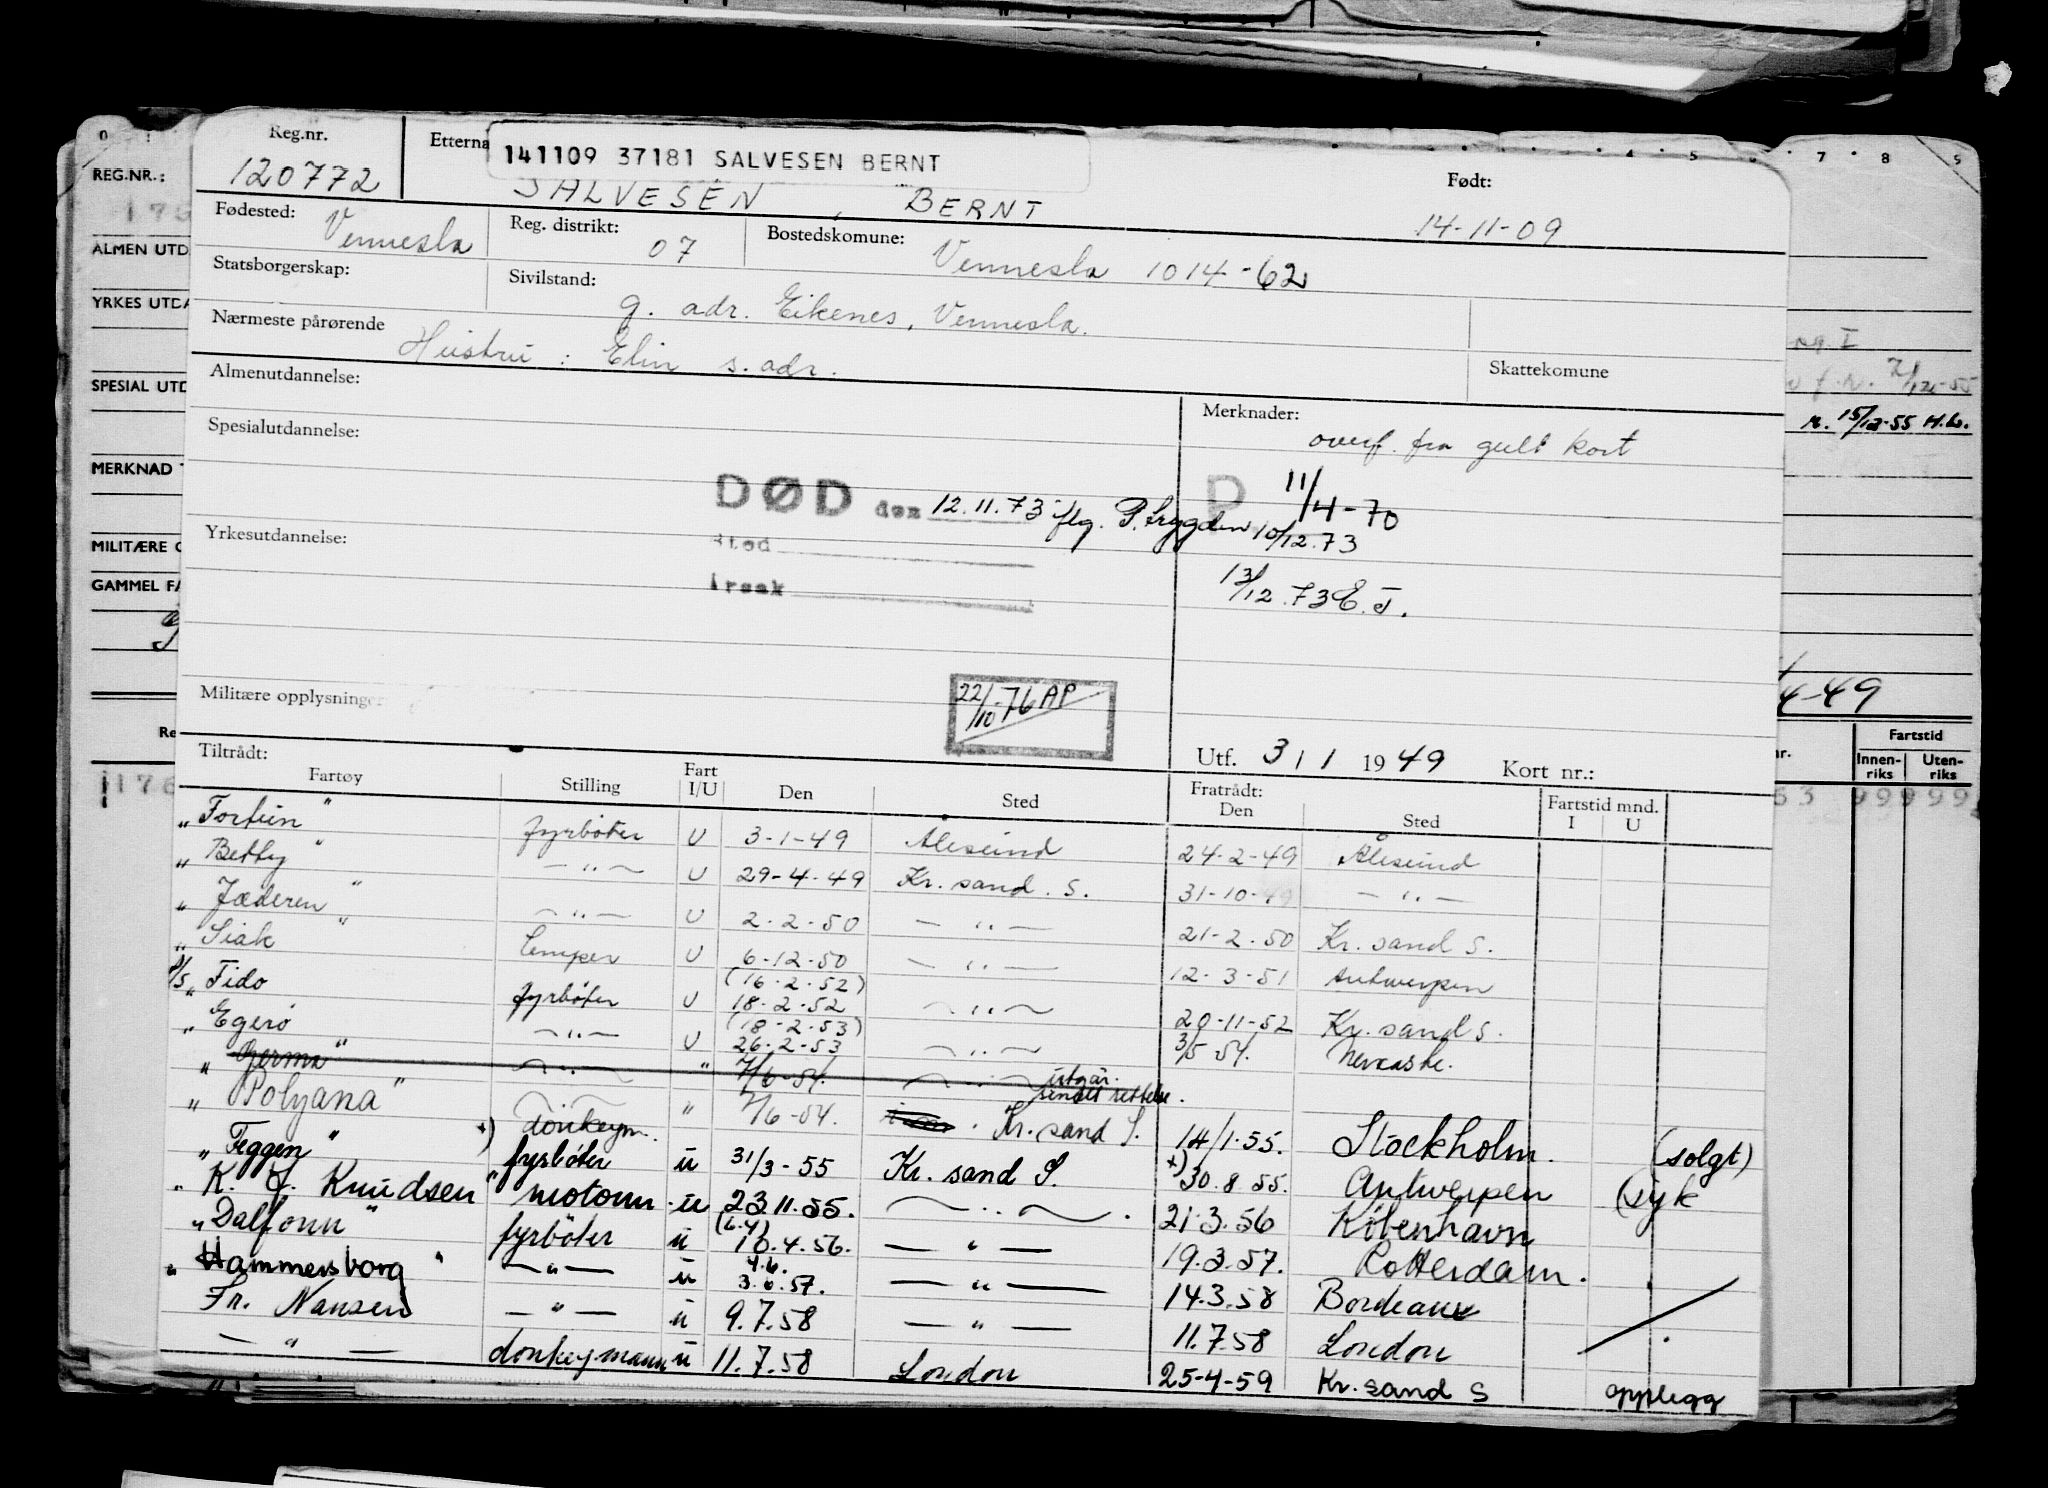 Reg.nr.
120772
141109 37181 SALVESEN BERNT
SALVESEN, BERNT
Født:
14-11-09
Fødested: Vennesla
Reg. distrikt: 07
Bostedskomune: Vennesla 1014-62
Statsborgerskap:
Sivilstand: g. adr. Eikenes, Vennesla.
Nærmeste pårørende Hustru: Elin s. adr.
Skattekomune
Almenutdannelse:
Merknader: overf. fra gult kort
Spesialutdannelse:
D 11/4-70
DØD den 12.11.73 iflg. P. trygden 10/12.73
Sted
Årsak
13/12.73 E.J.
Yrkesutdannelse:
Militære opplysninger
22/10-76 AP
Utf. 3/1 1949 Kort nr.:
Tiltrådt:
Fratrådt:
Fartøy Stilling Fart I/U Den Sted Den Sted Fartstid mnd. I U
"Fortun" fyrbøter U 3-1-49 Ålesund 24-2-49 Ålesund
"Betty" —"— U 29-4-49 Kr.sand.S. 31-10-49 —"—
"Jæderen" —"— U 2-2-50 —"— 21-2-50 Kr.sand S.
"Siak" lemper U 6-12-50 —"— 12-3-51 Antwerpen
D/S "Fido (16-2-52) fyrbøter U 18-2-52 —"— 20-11-52 Kr.sand S.
"Egerø (18-2-53) —"— U 26-2-53 —"— 3/5 54. Newcastle.
" —"— " 7/6-54. —"— utgår. sendt rettelse.
"Polyana" —"— " 7/6-54. Kr.sand S. 14/1-55. Stockholm. (solgt)
"Feggen" x) donkeym. fyrbøter u 31/3-55 Kr. sand S. x) 30.8.55. Antwerpen (syk
"K. J. Knudsen" motorm. u 23.11.55. —"—. 21.3.56 København
"Dalfonn" fyrbøter u (6.4) 10.4.56. —"— 19.3.57. Rotterdam.
"Hammersborg" —"— u 4.6. 3.6.57. —"— 14.3.58 Bordeaux
Fr. Nansen —"— u 9.7.58 —"— 11.7.58 London
—"— donkeymann u 11.7.58 London 25-4-59 Kr.sand S opplegg
REG.NR.:
ALMEN UTD
YRKES UTDA
SPESIAL UTD
MERKNAD
MILITÆRE
GAMMEL FA
7/12-55
15/12-55 H.L.
4-49
Fartstid
Innen-riks Uten-riks
53 999 99